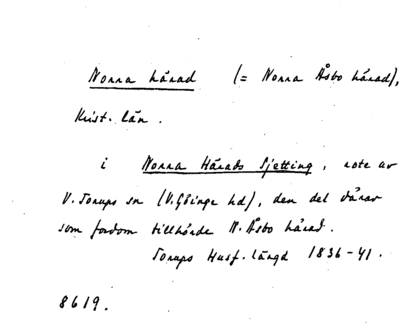 Norra härad (= Norra Åsbo härad),
Krist. län.
i Norra Härads Fjetting, rote av
V. Torups sn (V. Göinge hd), den del därav
som fordom tillhörde N. Åsbo härad.
Torups Husf. längd 1836-41.
8619.